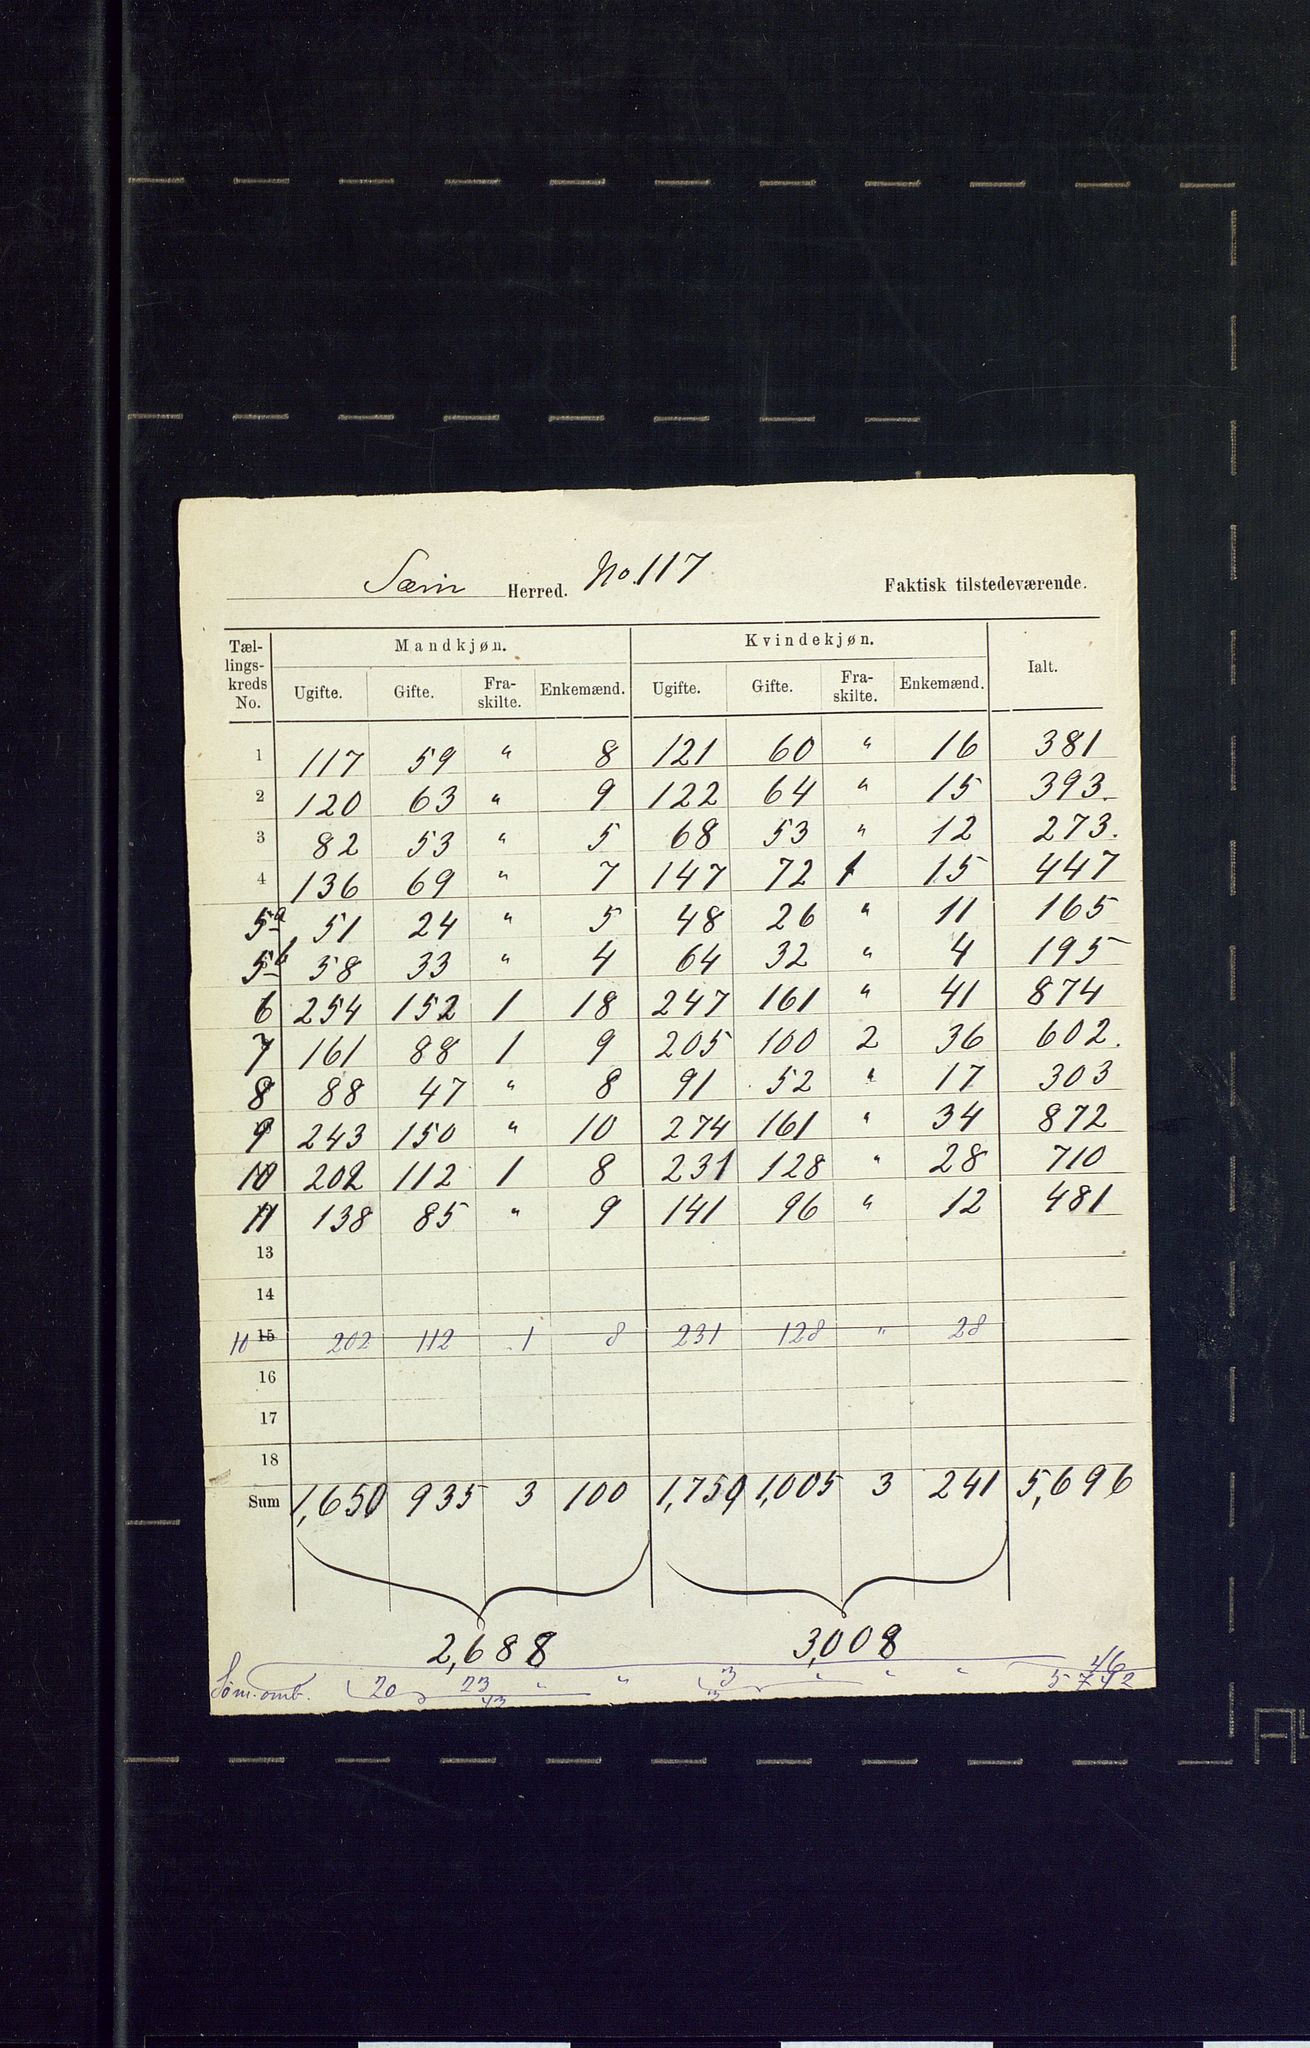 Sæm Herred. No. 117 Faktisk tilstedeværende.
Tællingskreds No. Mandkjøn. Kvindekjøn. Ialt.
Ugifte. Gifte. Fraskilte. Enkemænd. Ugifte. Gifte. Fraskilte. Enkemænd.
1 117 59 " 8 121 60 " 16 381
2 120 63 " 9 122 64 " 15 393.
3 82 53 " 5 68 53 " 12 273.
4 136 69 " 7 147 72 1 15 447
5a 51 24 " 5 48 26 " 11 165
5b 58 33 " 4 64 32 " 4 195
6 254 152 1 18 247 161 " 41 874
7 161 88 1 9 205 100 2 36 602.
8 88 47 " 8 91 52 " 17 303
9 243 150 " 10 274 161 " 34 872
10 202 112 1 8 231 128 " 28 710
11 138 85 " 9 141 96 " 12 481
13
14
10 15 202 112 1 8 231 128 " 28
16
17
18
Sum 1,650 935 3 100 1,759 1,005 3 241 5,696
2,688 3,008
Søm. omb. 20 23 " " 3 " " " 46
43 3 5742